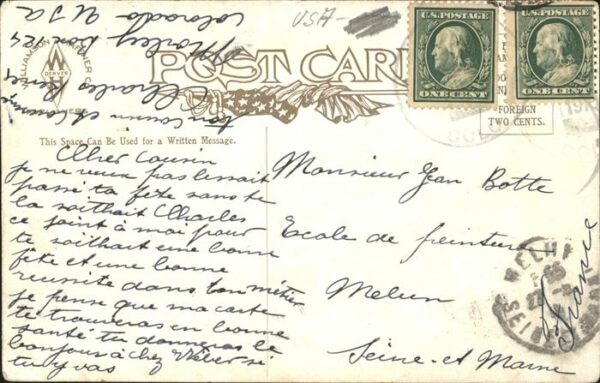 USA
POST CARD
WILLIAMSON
DENVER
U.S. POSTAGE
ONE CENT
U.S. POSTAGE
ONE CENT
FOREIGN
TWO CENTS.
This Space Can Be Used for a Written Message.
Cher Cousin
je ne veux pas laissait
passé ta fête sans te
la soithait Charles
ce joint à moi pour
te soithait une bonne
fête et une bonne
reussite dans ton métier
je pense que ma carte
te trouveras en bonne
santé tu donneras le
bonjours à chez Wéber si
tu y vas
ton cousin et cousine
Charles
Morley box 124
Colorado
U S A
Monsieur Jean Botte
Ecole de peinture
Melun
Seine-et-Marne
France
MELUN
SEINE